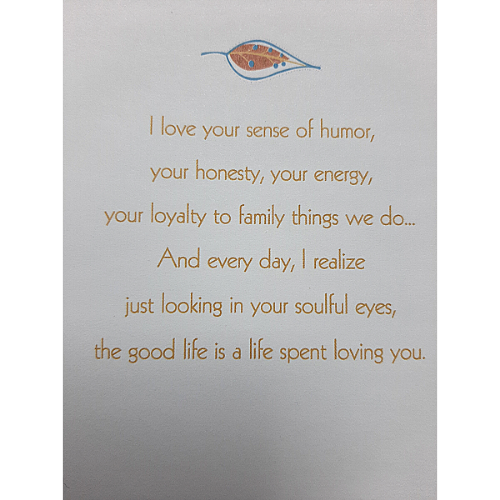 I love your sense of humor,
your honesty, your energy,
your loyalty to family things we do...
And every day, I realize
just looking in your soulful eyes,
the good life is a life spent loving you.